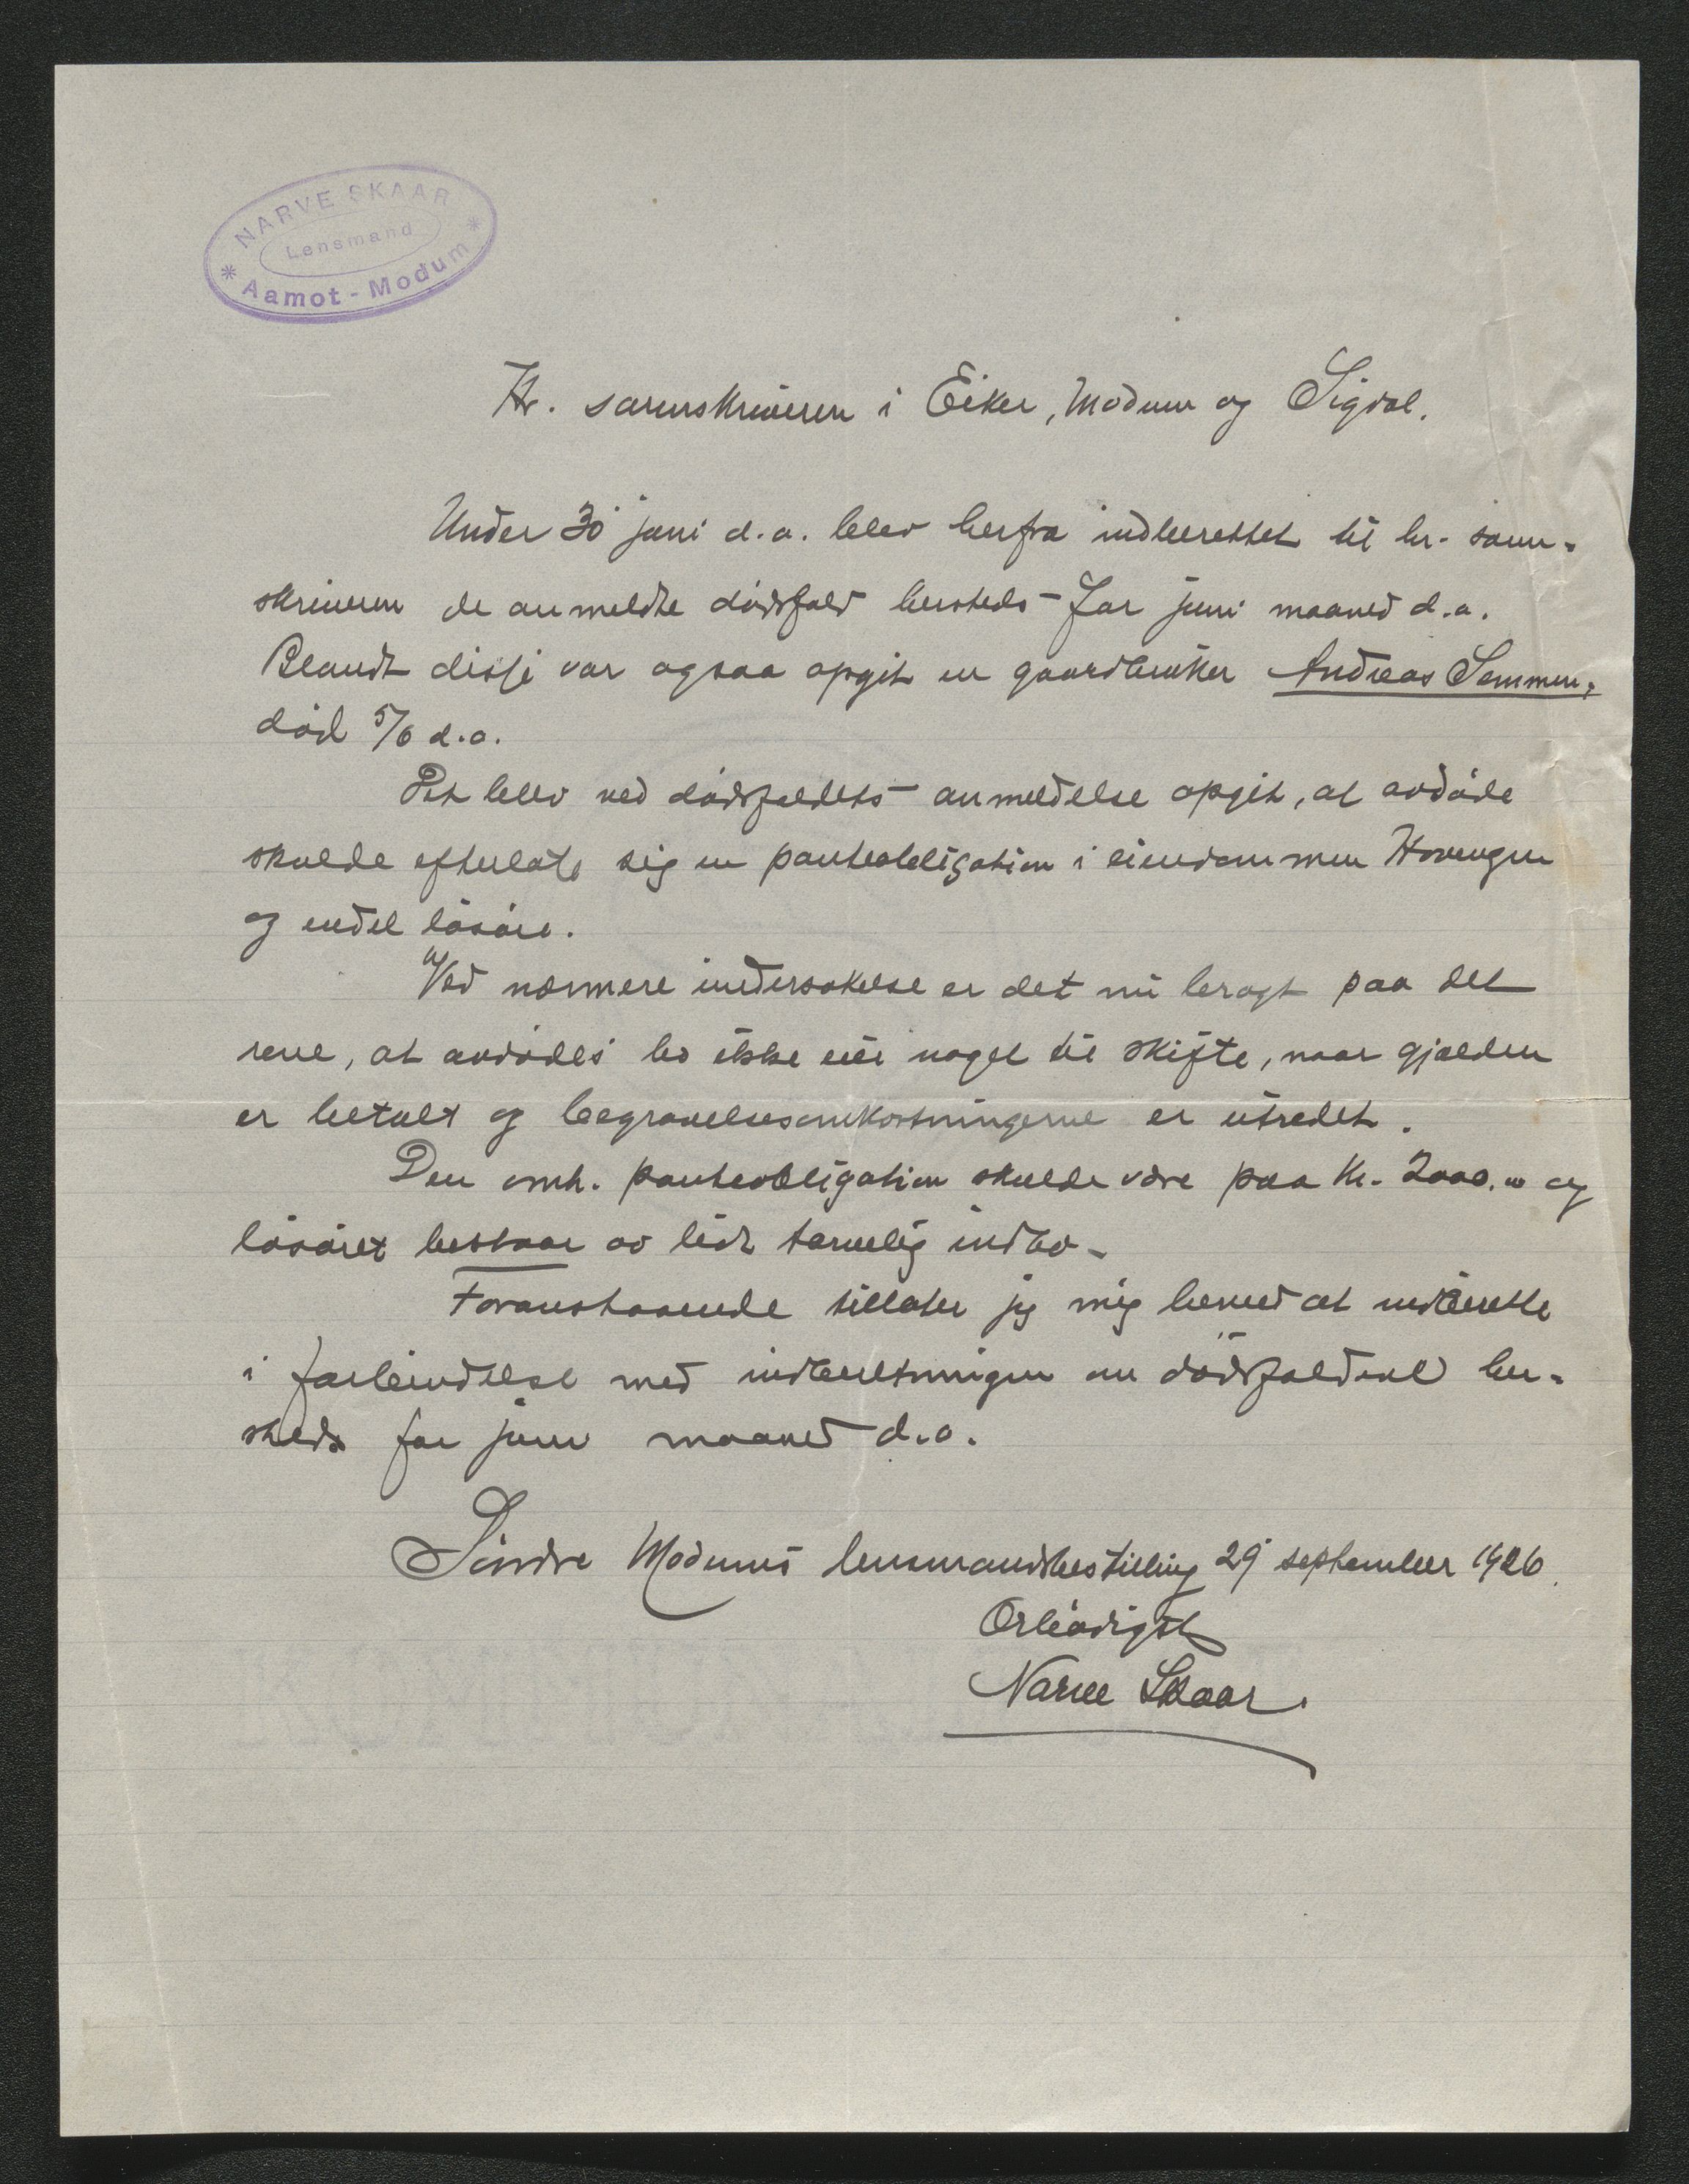 NARVE SKAAR
Lensmand
* Aamot - Modum *
Hr. sorenskriveren i Eiker, Modum og Sigdal.
Under 30 juni d.a. blev herfra indberettet til hr. soren-
skriveren de anmeldte dødsfald hersteds for juni maaned d.a.
Blandt disse var ogsaa opgit en gaardbruker Andreas Semmen,
død 5/6 d.a.
Det blev ved dødsfaldets anmeldelse opgit, at avdøde
skulde efterlate sig en panteobligation i eiendommen Hovengen
og endel løsøre.
Ved nærmere undersøkelse er det nu bragt paa det
rene, at avdødes bo ikke eier noget til skifte, naar gjælden
er betalt og begravelsesomkostningerne er utredet.
Den omh. panteobligation skulde være paa kr. 2000.00 og
løsøret bestaar av litt tarvelig indbo.
Foranstaaende tillater jeg mig herved at indberette
i forbindelse med indberetningen om dødsfaldene her-
steds for juni maaned d.a.
Søndre Modums lensmandsbestilling 29 september 1926.
Ærbødigst
Narve Skaar.